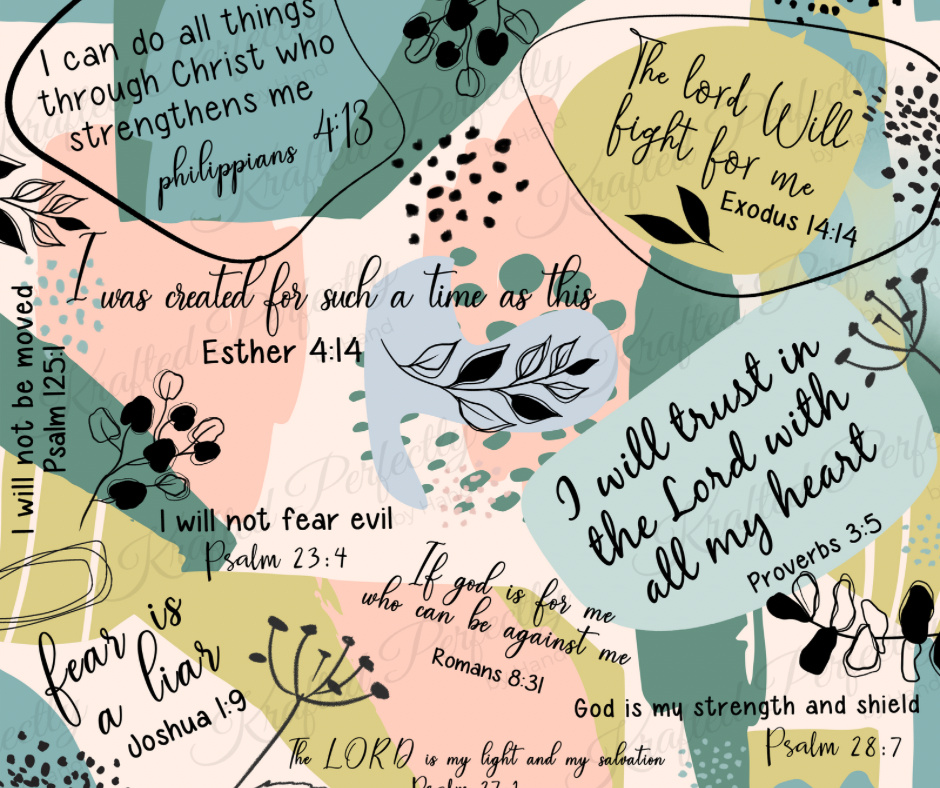 I can do all things
through Christ who
strengthens me
philippians 4:13
The lord Will
fight for me
Exodus 14:14
I was created for such a time as this
Esther 4:14
I will not be moved
Psalm 125:1
I will trust in
the Lord with
all my heart
Proverbs 3:5
I will not fear evil
Psalm 23:4
If god is for me
who can be against me
Romans 8:31
fear is
a liar
Joshua 1:9
God is my strength and shield
Psalm 28:7
The LORD is my light and my salvation
Psalm
Krafted Perfectly
by Hand